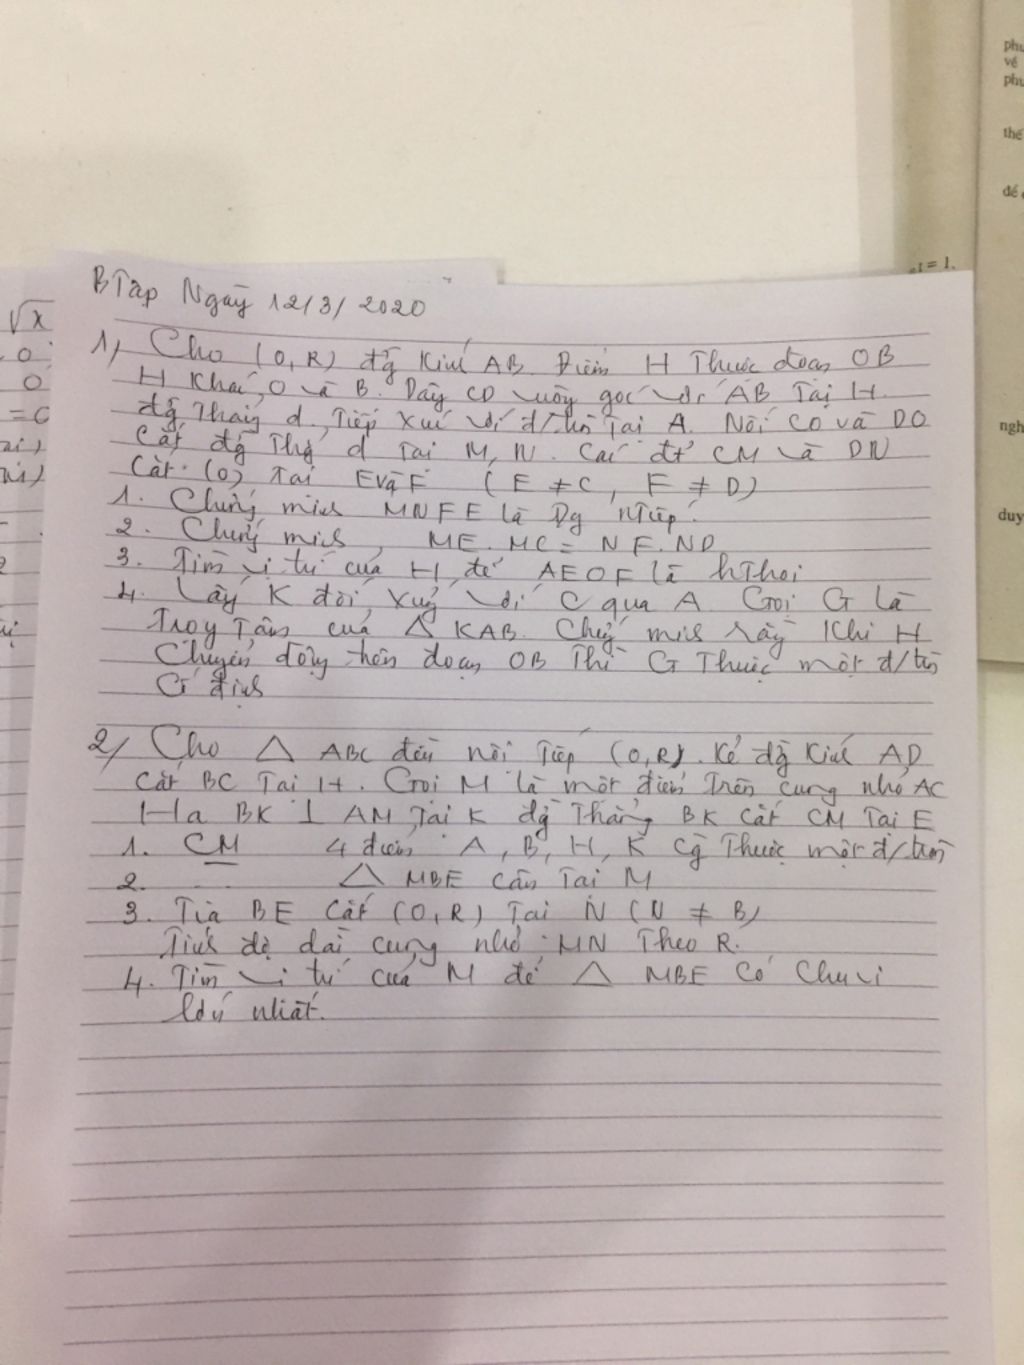 BTập Ngày 12/3/2020
1) Cho (O,R) đg Kính AB. Điểm H Thuộc đoạn OB
H Khác O và B. Dây CD vuông góc với AB Tại H.
đg Thẳng d Tiếp xúc với đ/tròn Tại A. Nối CO và DO
Cắt đg Thg d Tại M, N. Các đt CM và DN
Cắt (O) Tại E và F (E ≠ C, F ≠ D)
1. Chứng minh MNFE là Tg nTiếp.
2. Chứng minh ME.MC = NF.ND
3. Tìm vị trí của H để AEOF là hThoi
4. Lấy K đối xứng với C qua A. Gọi G là
Trọng Tâm của △ KAB. Chứg minh rằng Khi H
Chuyển động trên đoạn OB Thì G Thuộc một đ/tròn
Cố định
2) Cho △ ABC đều nội Tiếp (O,R). Kẻ đg Kính AD
Cắt BC Tại H. Gọi M là một điểm Trên cung nhỏ AC
Hạ BK ⊥ AM Tại K đg Thẳng BK Cắt CM Tại E
1. CM 4 điểm A, B, H, K cg Thuộc một đ/tròn
2. △ MBE cân Tại M
3. Tia BE Cắt (O,R) Tại N (N ≠ B)
Tính độ dài cung nhỏ MN Theo R.
4. Tìm vị trí của M để △ MBE có Chu vi
lớn nhất.
√x
0
0
= 0
phu
về
phu
thế
để
= 1.
ngh
duy